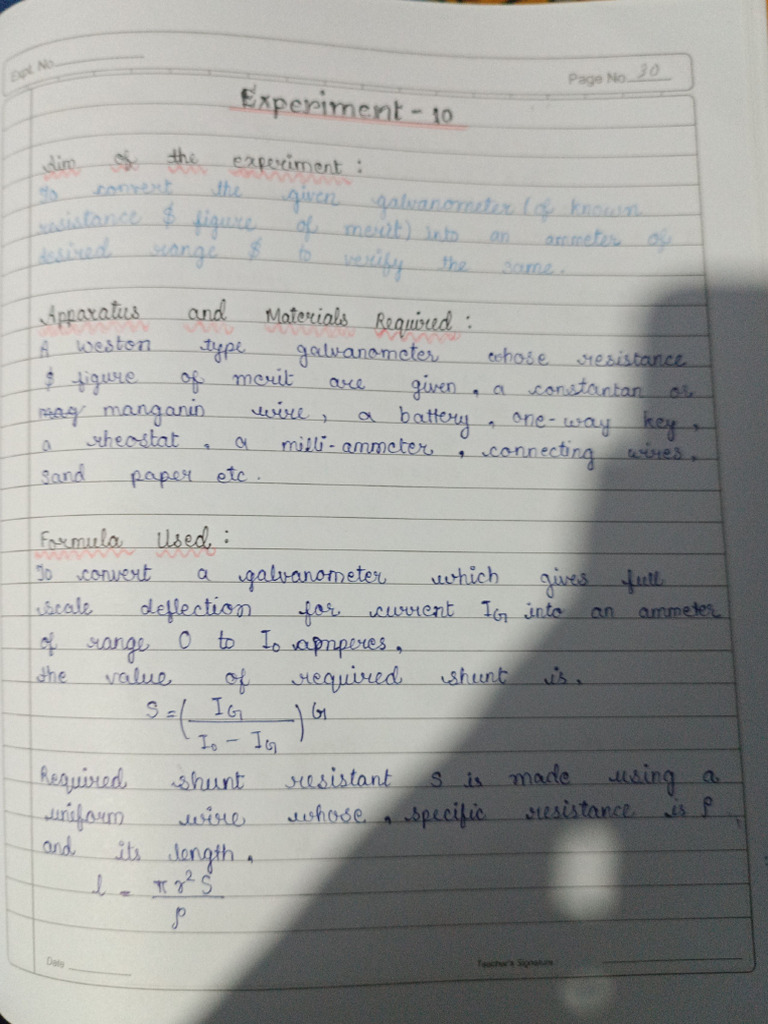 Expt. No.
Page No. 30
Experiment - 10
Aim of the experiment :
To convert the given galvanometer (of known
resistance $ figure of merit) into an ammeter of
desired range $ to verify the same.
Apparatus and Materials Required :
A weston type galvanometer whose resistance
$ figure of merit are given, a constantan or
mag manganin wire, a battery, one-way key,
a rheostat, a milli-ammeter, connecting wires,
sand paper etc.
Formula Used :
To convert a galvanometer which gives full
scale deflection for current IG into an ammeter
of range 0 to I0 apmperes,
the value of required shunt is,
S = ( IG / I0 - IG ) G
Required shunt resistant S is made using a
uniform wire whose, specific resistance is ρ
and its length,
l = πr²S / ρ
Date
Teacher's Signature